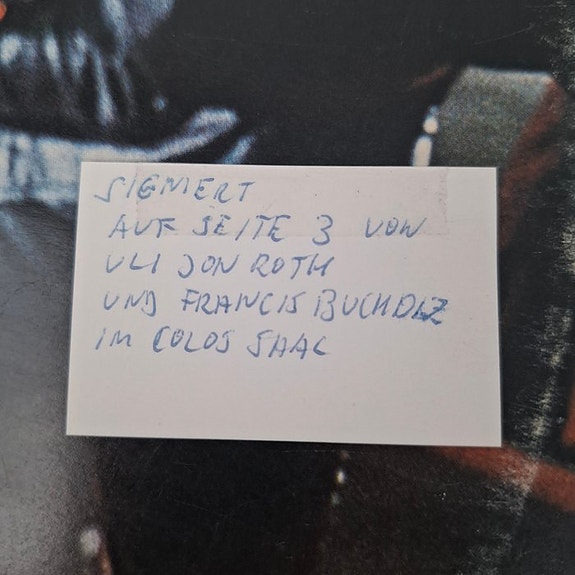 SIGNIERT
AUF SEITE 3 VON
ULI JON ROTH
UND FRANCIS BUCHOLZ
IM COLOS SAAL